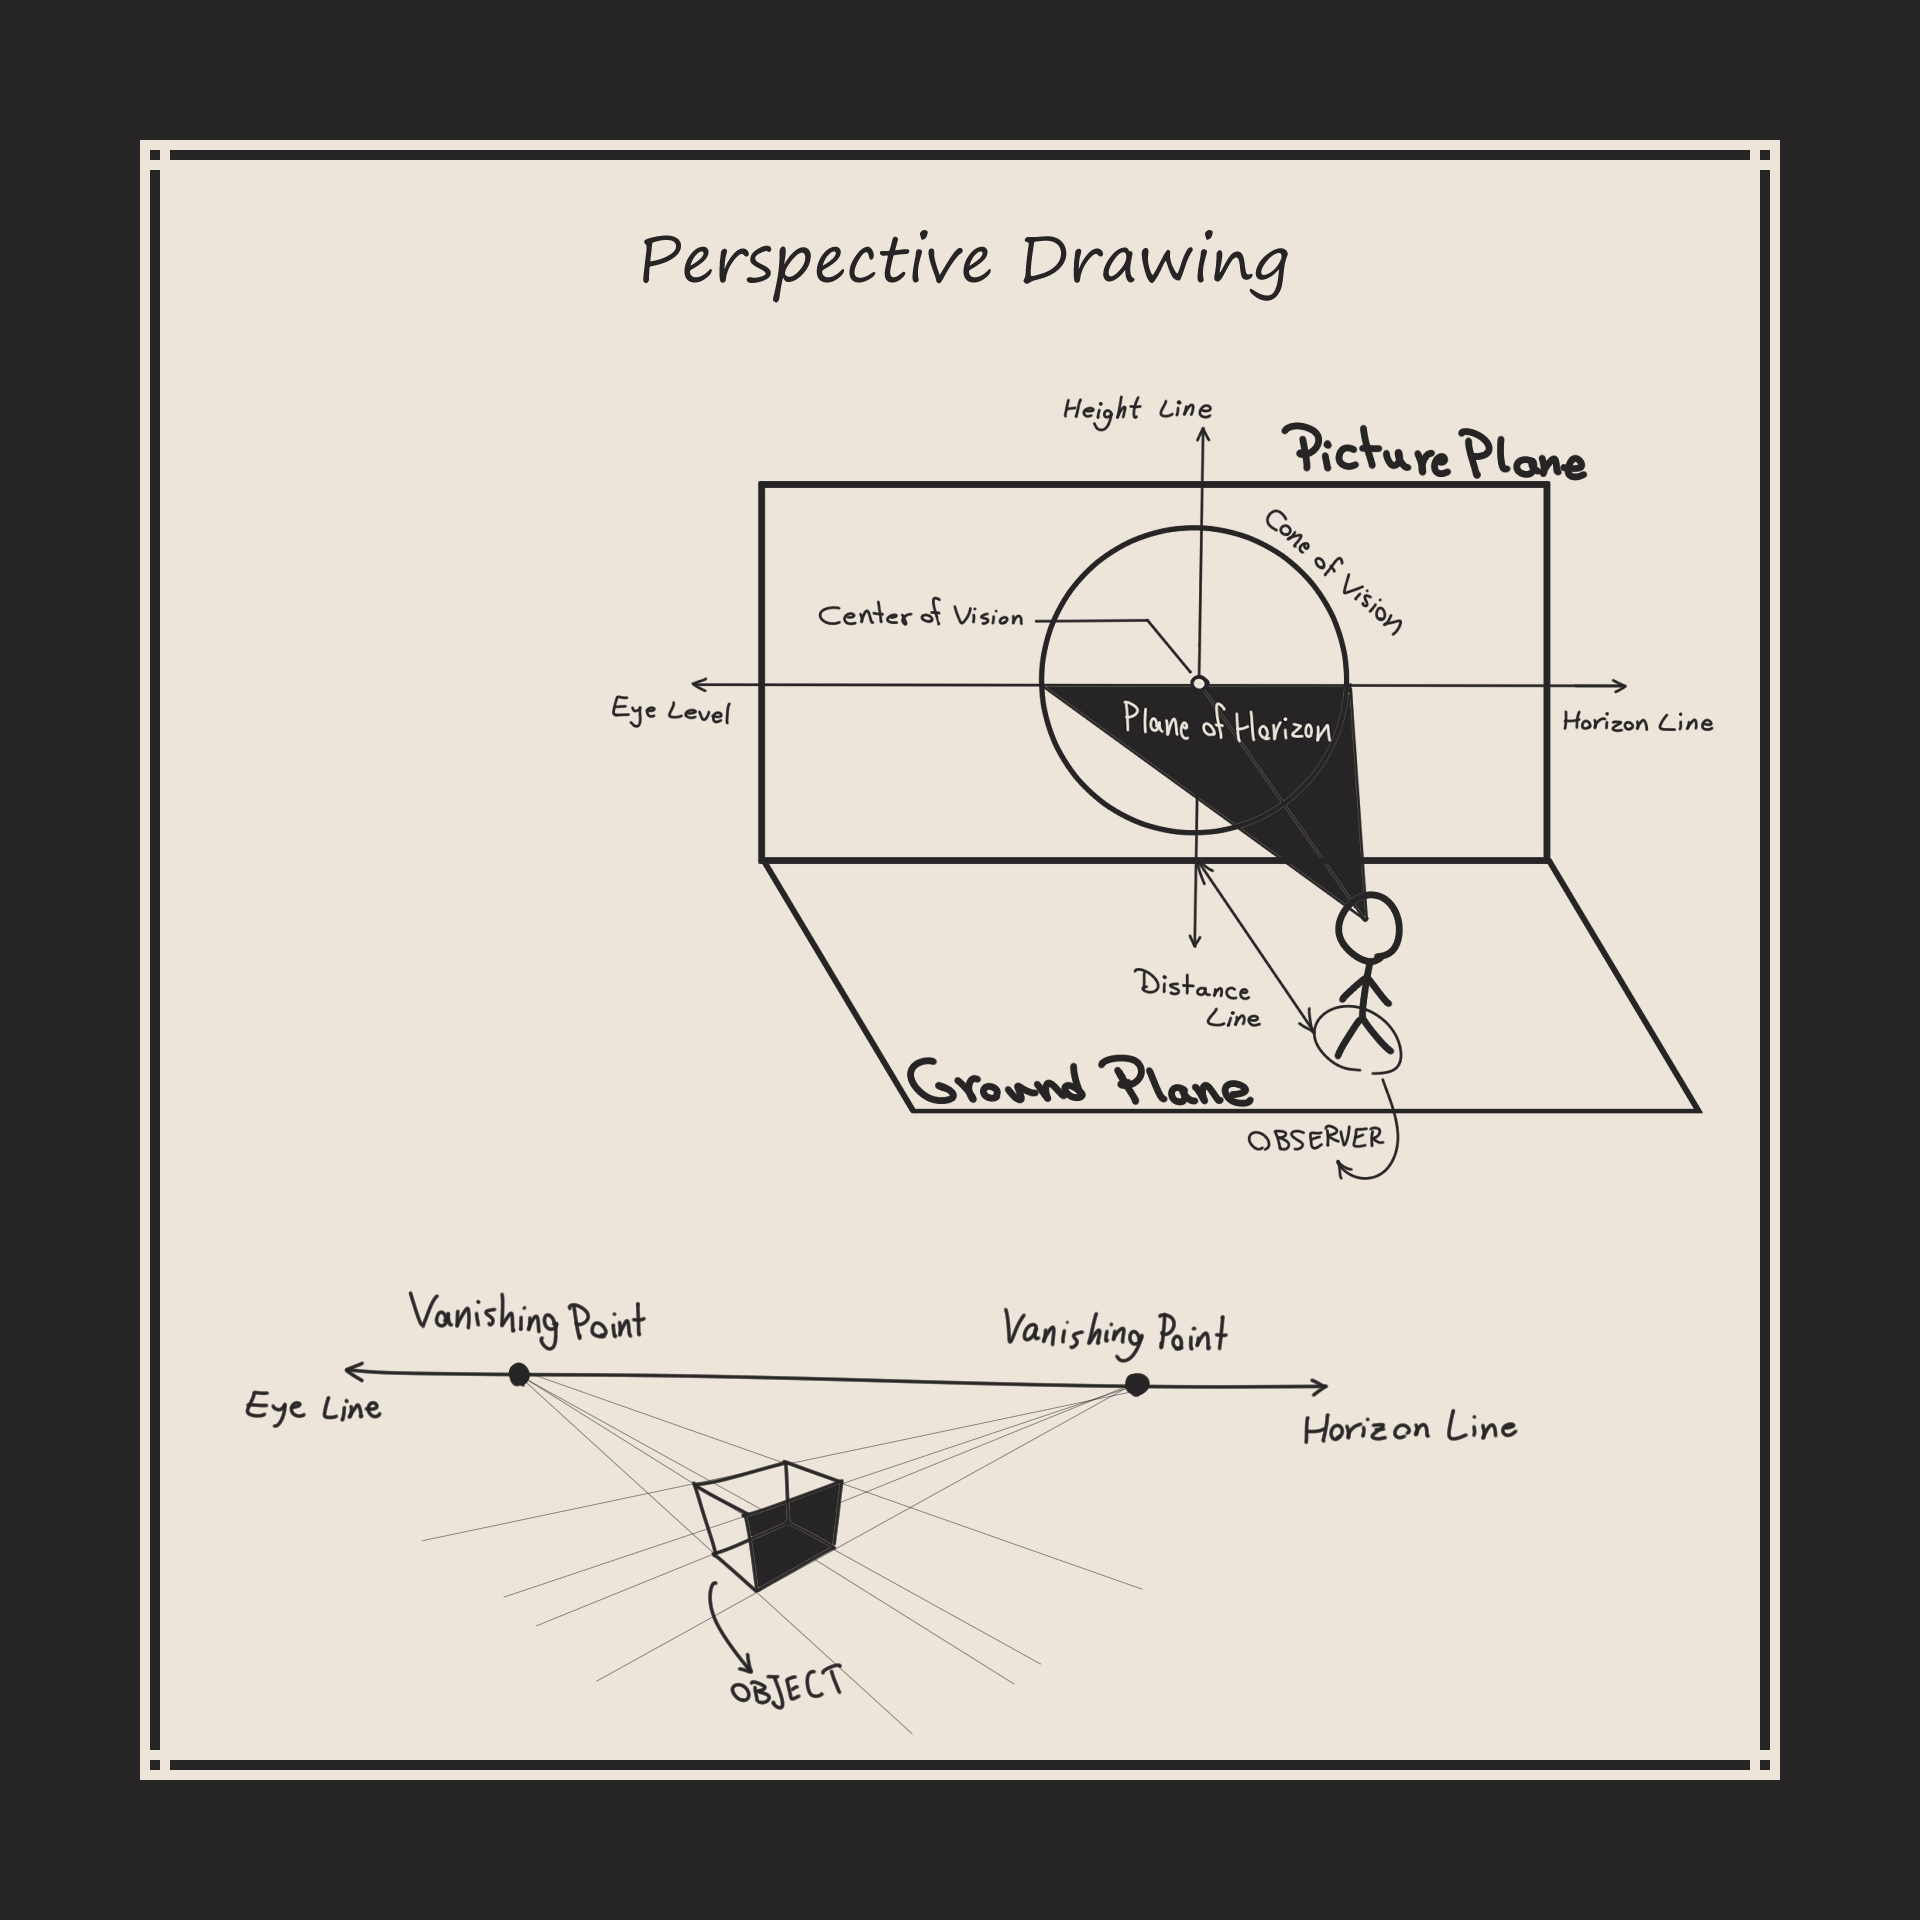 Perspective Drawing
Height Line
Picture Plane
Cone of Vision
Center of Vision
Eye Level
Plane of Horizon
Horizon Line
Distance
Line
Ground Plane
OBSERVER
Vanishing Point
Vanishing Point
Eye Line
Horizon Line
OBJECT